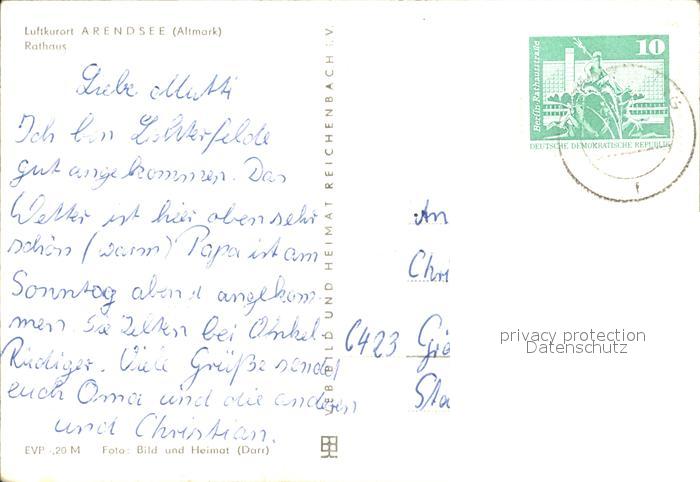 Luftkurort ARENDSEE (Altmark)
Rathaus
Liebe Mutti
Ich bin Lichterfelde
gut angekommen. Das
Wetter ist hier oben sehr
schön (warm) Papa ist am
Sonntag abend angekom-
men. Sie Zelten bei Onkel
Rüdiger. Viele Grüße sendet
euch Oma und die anderen
und Christian.
EVP -,20 M Foto: Bild und Heimat (Darr)
VEB BILD UND HEIMAT REICHENBACH i. V.
10
Berlin, Rathausstraße
DEUTSCHE DEMOKRATISCHE REPUBLIK
An
Chri
6423 Grä
Sta
privacy protection
Datenschutz